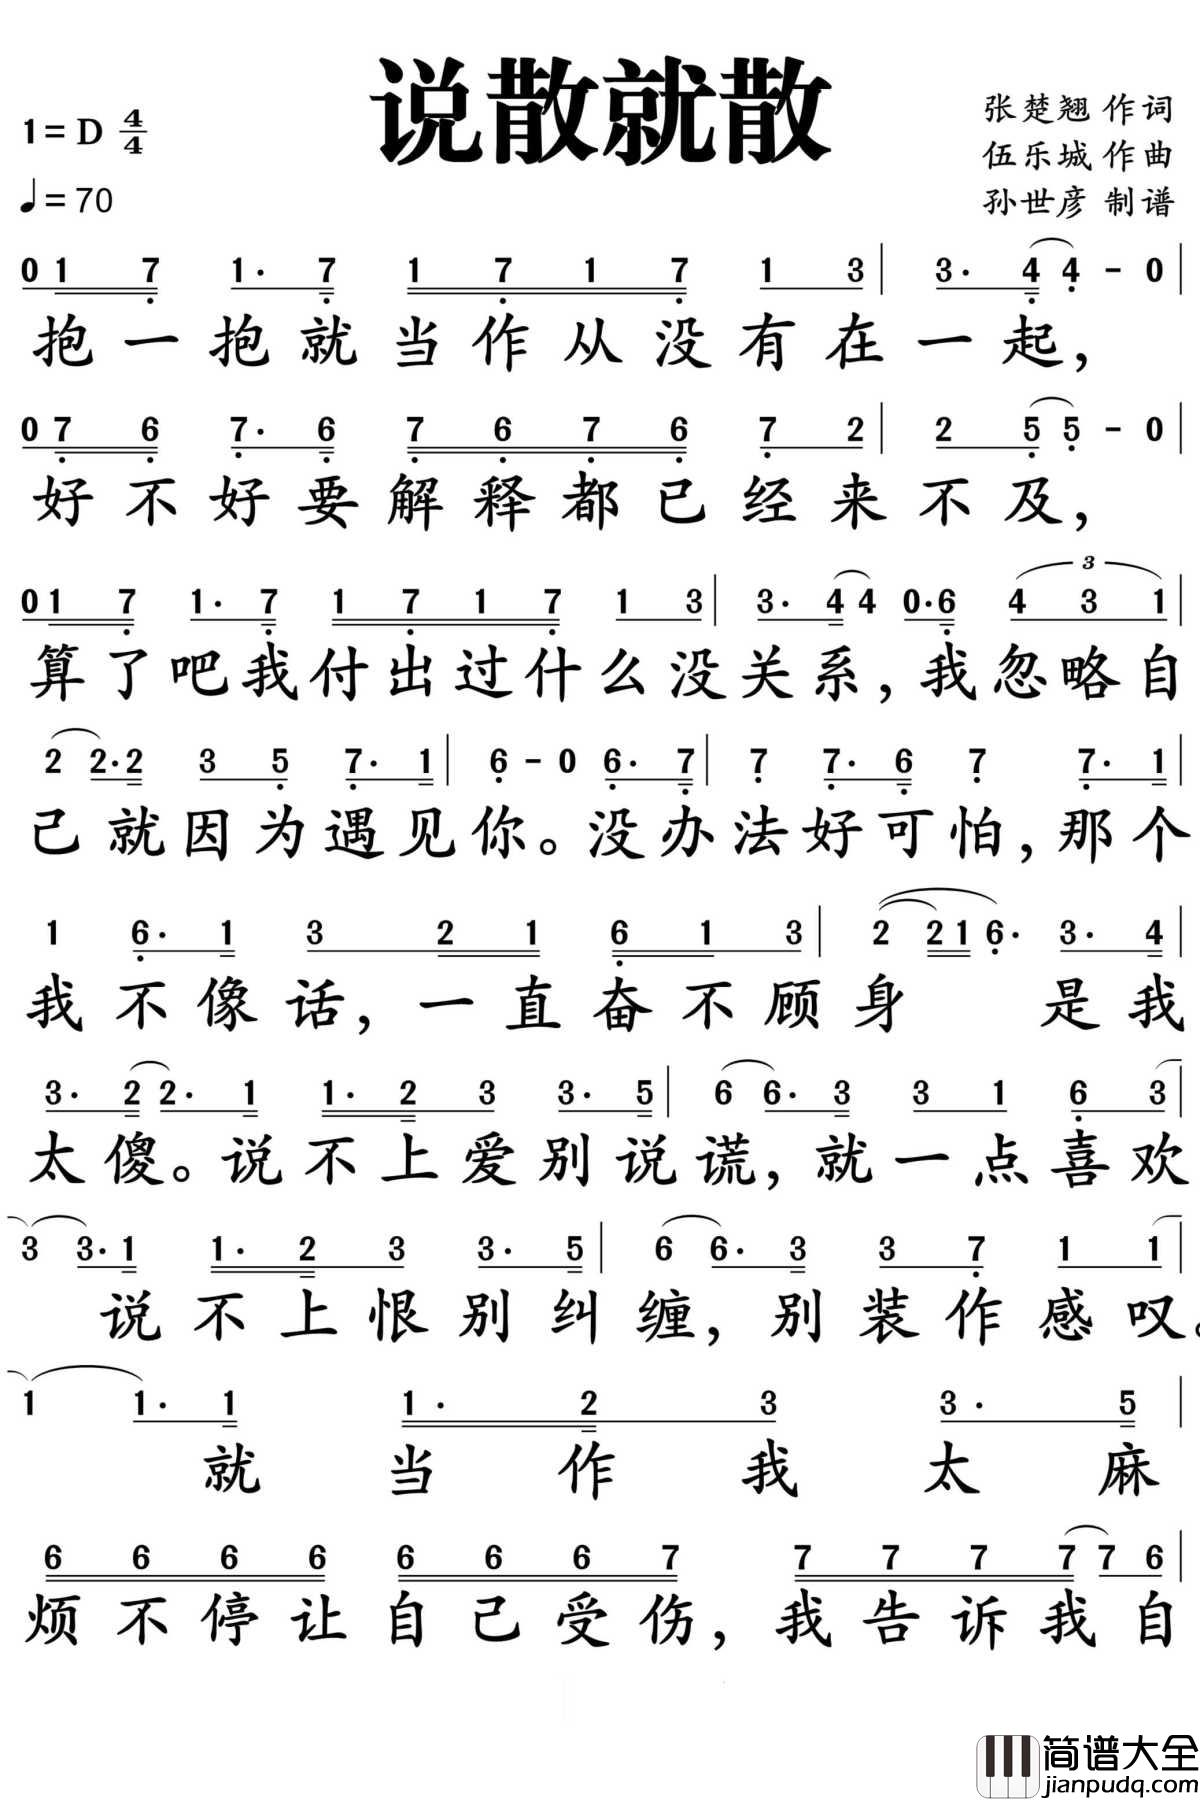 说散就散
1=D 4/4
♩=70
张楚翘 作词
伍乐城 作曲
孙世彦 制谱
0 1 7 1· 7 1 7 1 7 1 3 | 3· 4 4 - 0 |
抱一抱就当作从没有在一起，
0 7 6 7· 6 7 6 7 6 7 2 | 2 5 5 - 0 |
好不好要解释都已经来不及，
0 1 7 1· 7 1 7 1 7 1 3 | 3· 4 4 0· 6 4 3 1 |
3
算了吧我付出过什么没关系，我忽略自
2 2· 2 3 5 7· 1 | 6 - 0 6· 7 | 7 7· 6 7 7· 1 |
己就因为遇见你。没办法好可怕，那个
1 6· 1 3 2 1 6 1 3 | 2 2 1 6· 3· 4 |
我不像话，一直奋不顾身 是我
3· 2 2· 1 1· 2 3 3· 5 | 6 6· 3 3 1 6 3 |
太傻。说不上爱别说谎，就一点喜欢
3 3· 1 1· 2 3 3· 5 | 6 6· 3 3 7 1 1 |
说不上恨别纠缠，别装作感叹。
1 1· 1 1· 2 3 3· 5 |
就当作我太麻
6 6 6 6 6 6 6 7 7 7 7 7 7 6 |
烦不停让自己受伤，我告诉我自
简谱大全
jianpudq.com